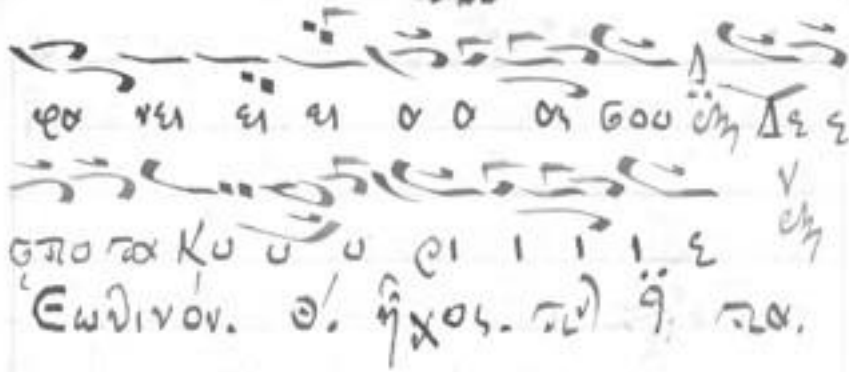 φα νει ει ει α α ας σου Δε ε
σπο τα Κυ υ υ ρι ι ι ι ε
Ἑωθινόν. Θ΄. ἦχος. πα.